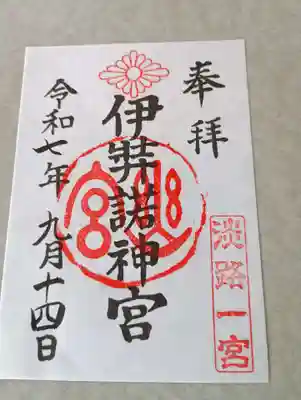 奉拝
淡路一宮
伊弉諾神宮
令和七年 九月十四日